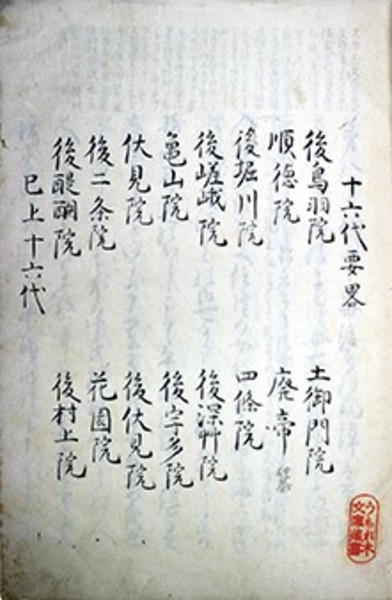 十六代要畧
後鳥羽院 土御門院
順德院 廃帝
後堀川院 四條院
後嵯峨院 後深艸院
亀山院 後宇多院
伏見院 後伏見院
後二条院 花園院
後醍醐院 後村上院
已上十六代
うもれ木
文庫蔵書